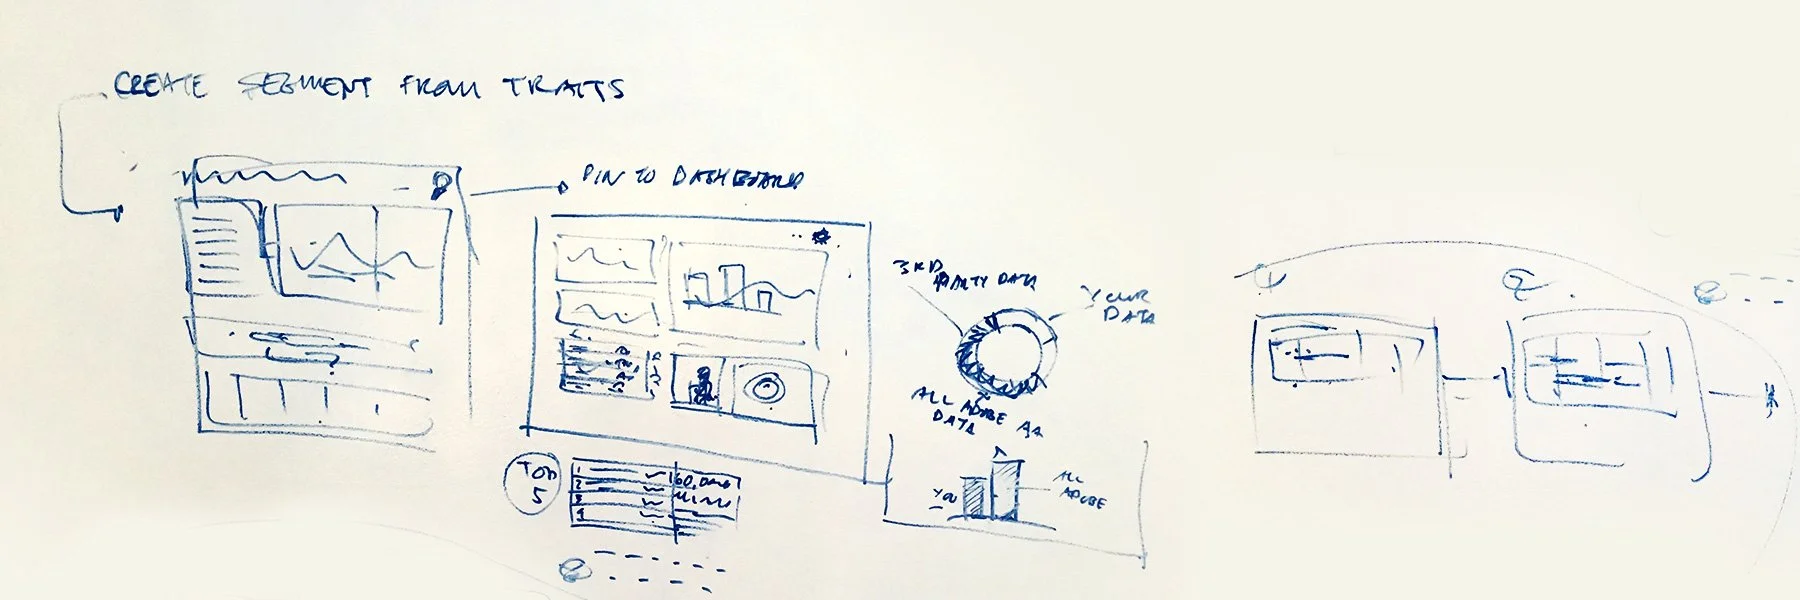 CREATE SEGMENT FROM TRAITS
PIN TO DASHBOARD
3RD
PARTY DATA
YOUR
DATA
ALL ADOBE AA
DATA
TOP
5
1
2
3
4
YOU
ALL
ADOBE
1
2